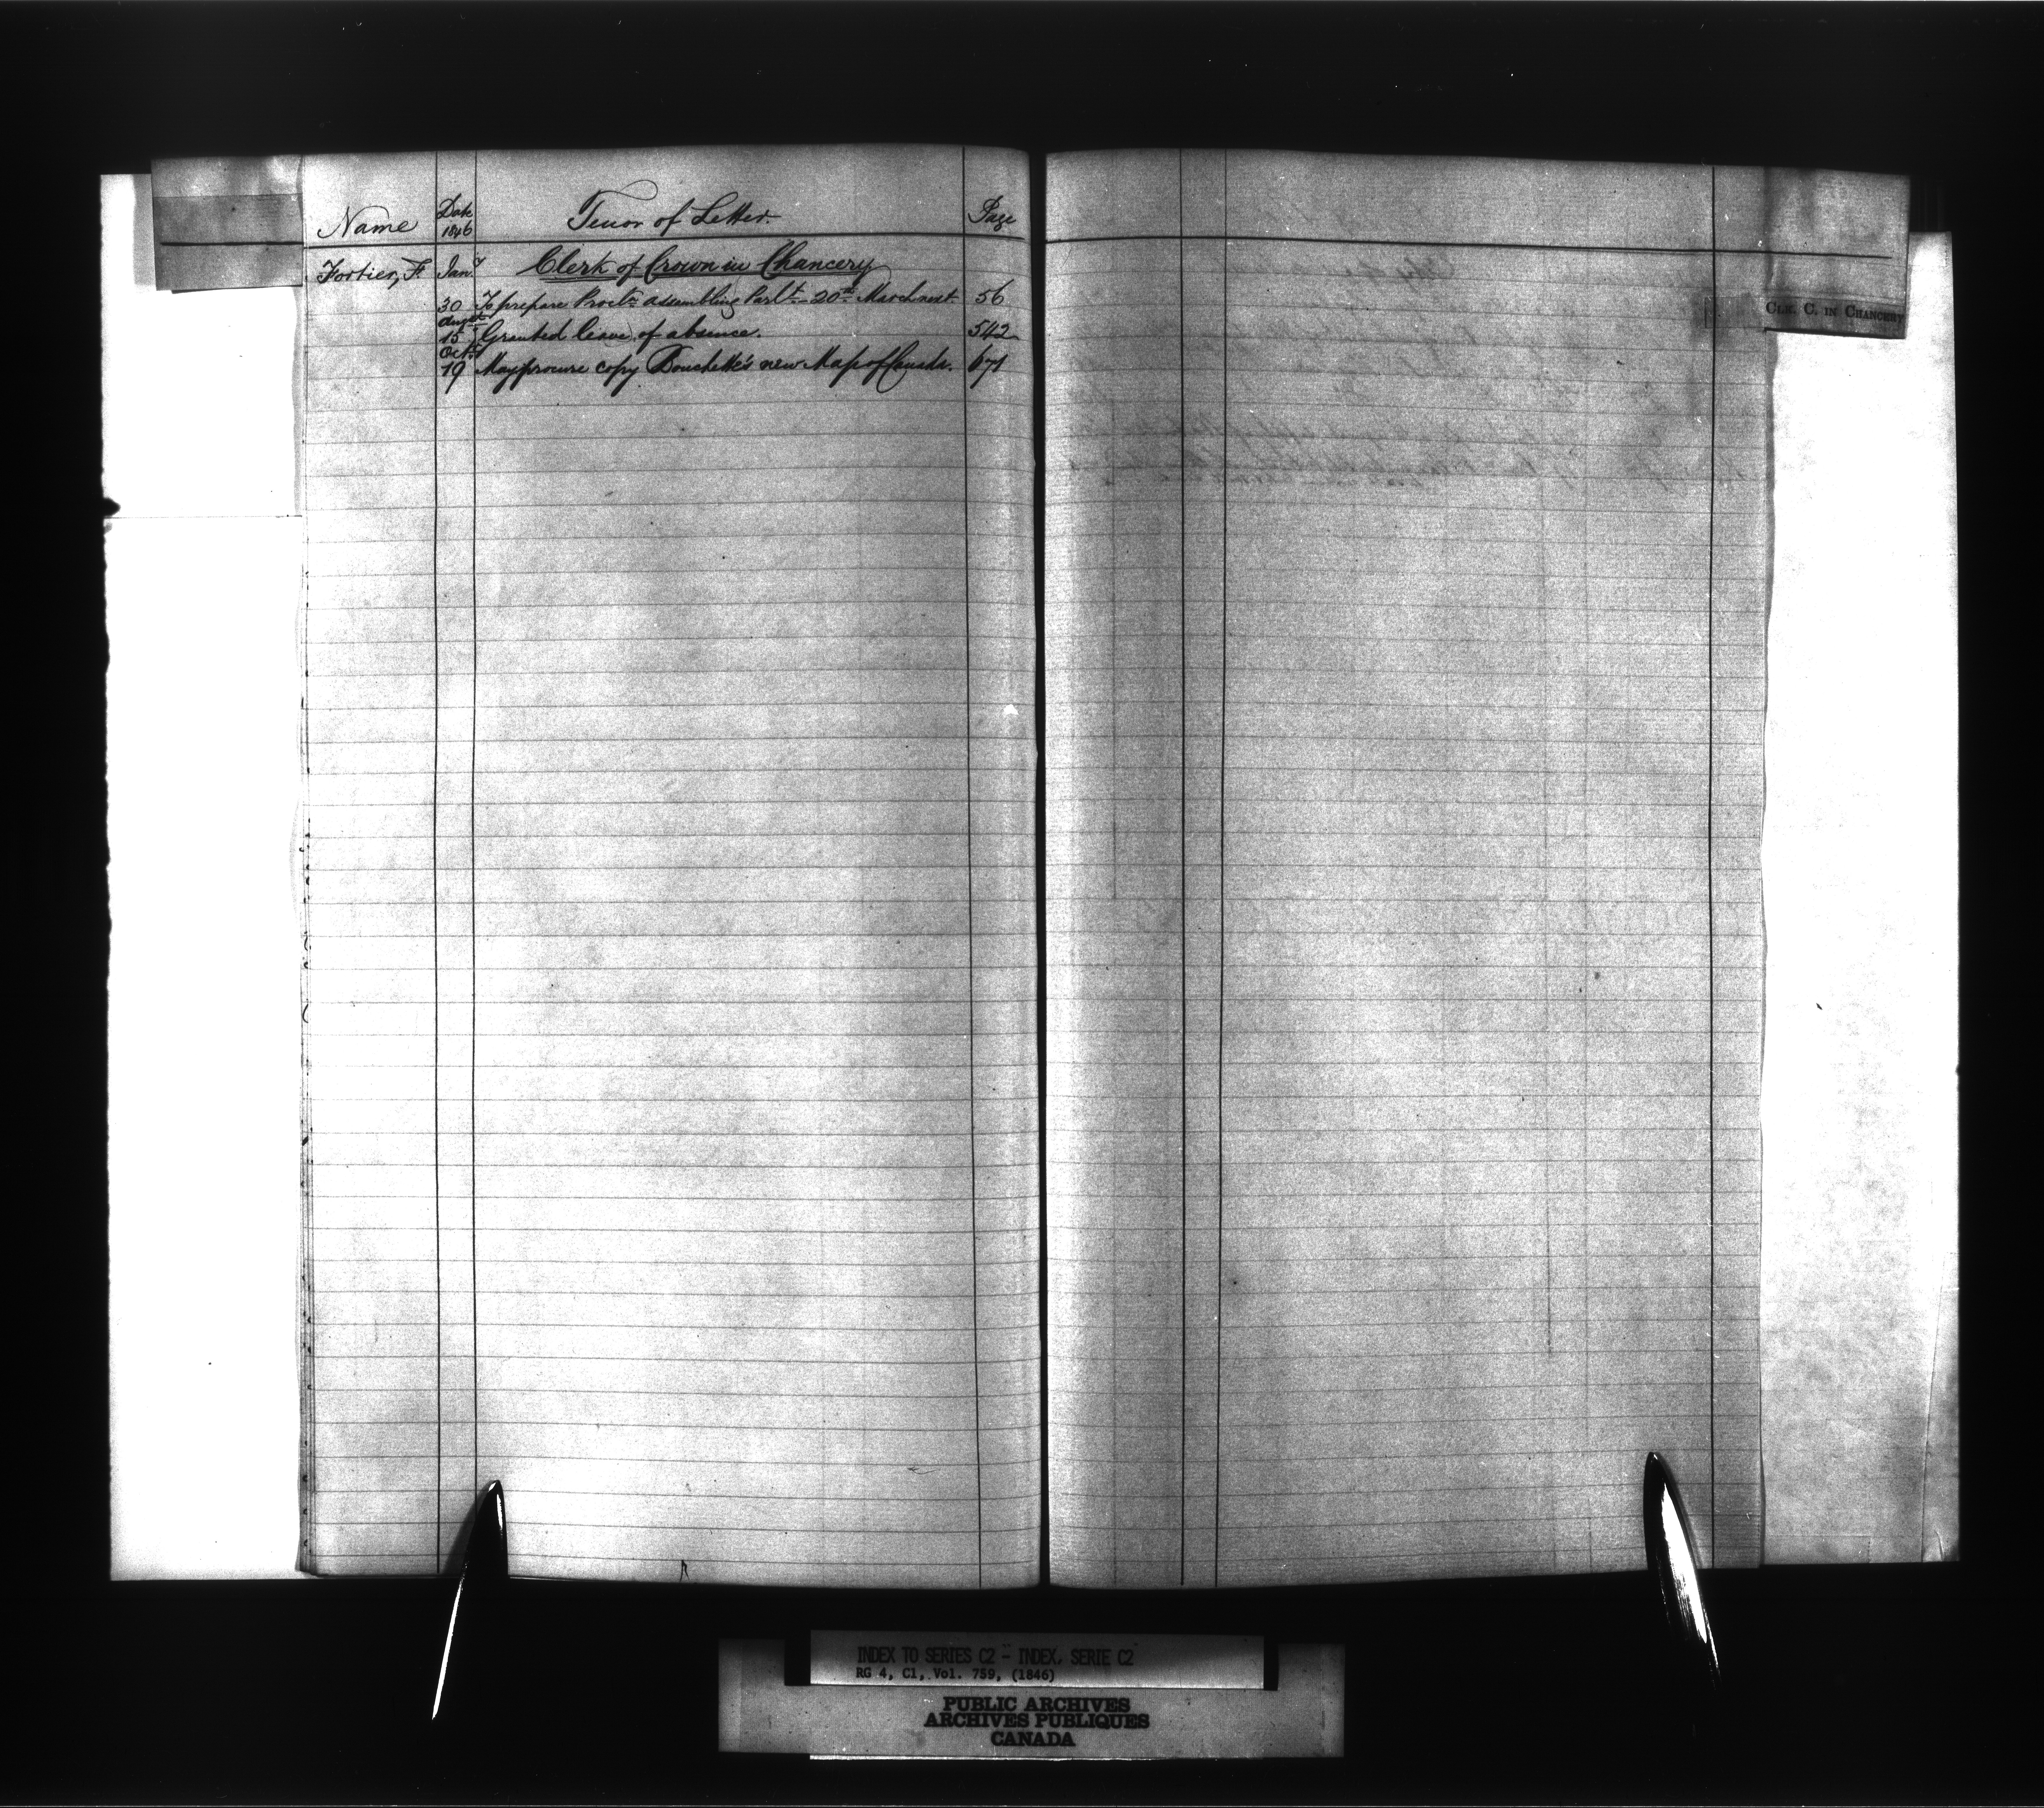 Name Date 1846 Tenor of Letter. Page
Fortier, F. Jany Clerk of Crown in Chancery
30 To prepare Procln assembling Parlt 20th March next. 56
Augst
15 Granted leave of absence. 542
Octr
19 May procure copy Bouchette's new Map of Canada. 671
CLK. C. IN CHANCERY
INDEX TO SERIES C2 - INDEX, SERIE C2
RG 4, C1, Vol. 759, (1846)
PUBLIC ARCHIVES
ARCHIVES PUBLIQUES
CANADA